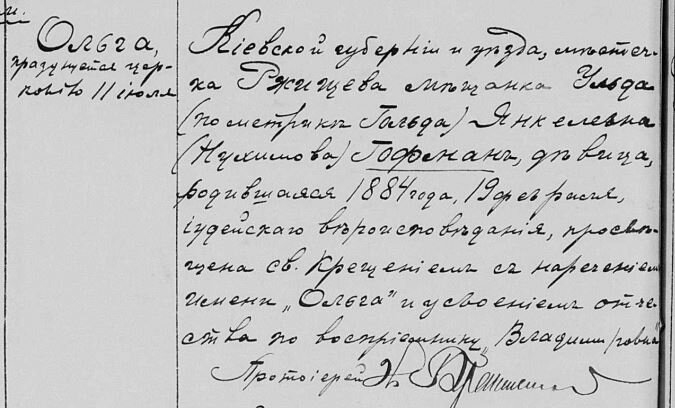 Ольга,
празднуется цер-
ковію 11 іюля
Кіевской губерніи и уѣзда, мѣстеч-
ка Ржищева мѣщанка Ульда
(по метрикѣ Гольда) Янкелевна
(Нухимова) Гофманъ, дѣвица,
родившаяся 1884 года, 19 февраля,
іудейскаго вѣроисповѣданія, просвѣ-
щена св. крещеніемъ съ нареченіемъ
имени „Ольга" и усвоеніемъ отче-
ства по воспріемнику „Владиміровна"
Протоіерей